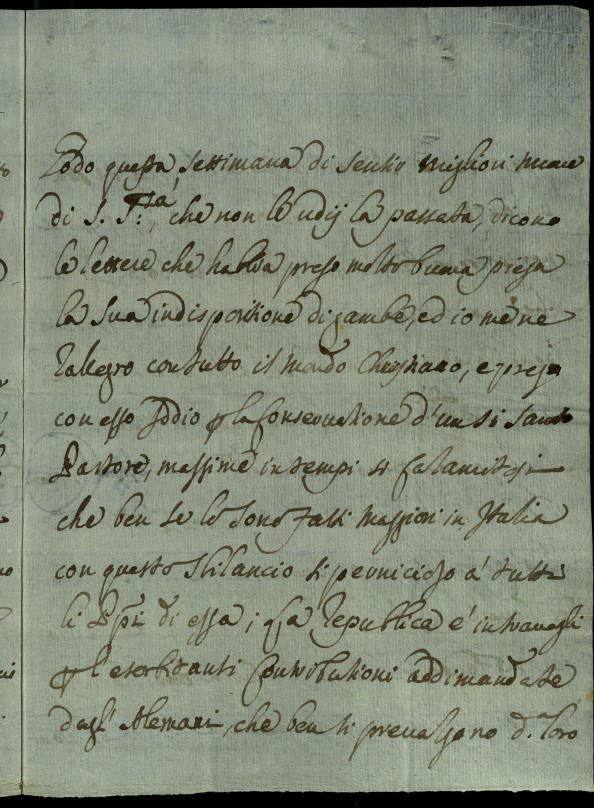 Godo questa settimana di sentir migliori nuove
di S. S.tà, che non le udij la passata, dicono
le lettere che habbia preso molto buona piega
la sua indispositione di gambe, ed io me ne
rallegro con tutto il mondo Christiano, e prego
con esso Iddio p la conservatione d'un si santo
Pastore, massime in tempi si calamitosi
che ben se lo sono fatti maggiori in Italia
con questo sbilancio si pernicioso a' tutti
li Ppi di essa; La Republica e' in travagli
p l'esorbitanti contributioni addimandate
dagl' Alemani, che ben si prevalgono d. loro